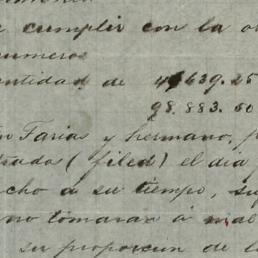 e cumplir con la o
umeros
entidad de 4,639.25
98.883.60
Farias y hermano, p
trada (filed) el dia
cho a su tiempo, su
no tomaran á mal
su proporcun de l